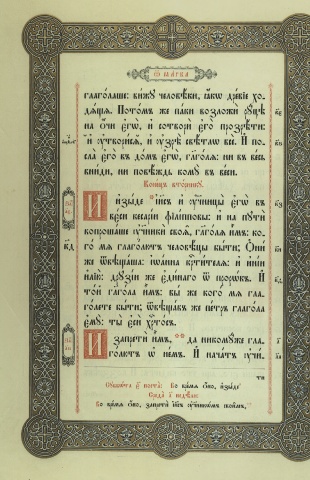 Ѿ МАРКА
глаголаше: вижꙋ человѣки, ꙗкѡ древїе хо-
дѧща. Потомъ же паки возложи рꙋцѣ
на ѻчи єгѡ̀, и сотвори єго прозрѣти:
и оутворисѧ, и оузрѣ свѣтлѡ всѧ. И посла
єго въ домъ єгѡ, глаголѧ: ни въ весь
вниди, ни повѣждь комꙋ въ веси.
Конецъ вторникꙋ.
И изыде І҆и҃съ и оученицы єгѡ въ
веси кесарїи фїлїпповы: и на пꙋти
вопрошаше оученики своѧ, глаголѧ имъ: ко-
го мѧ глаголютъ человѣцы быти; Ѻни
же ѿвѣщаша: Іѡанна крⷭ҇тителѧ: и инїи
илїю: дрꙋзїи же єдинаго ѿ прⷪ҇рѡкъ. И
той глагола имъ: вы же кого мѧ гла-
голете быти; ѿвѣщавъ же петръ глагола
ємꙋ: ты єси хрⷭ҇тосъ.
И запрети имъ, да никомꙋже гла-
голютъ ѡ немъ. И начатъ оучи-
Во времѧ ѻно, изыде
Во времѧ ѻно, запрети І҆и҃съ оученикѡмъ своимъ,